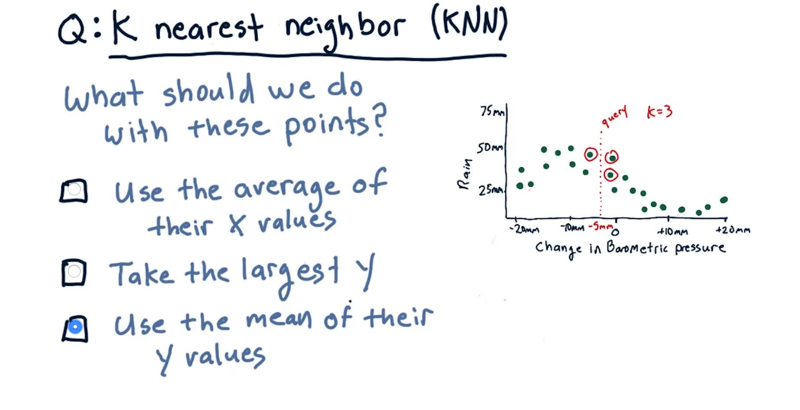 Q: K nearest neighbor (KNN)
What should we do
with these points?
Use the average of
their X values
Take the largest Y
Use the mean of their
Y values
75mm
50mm
25mm
Rain
query K=3
-20mm -10mm -5mm 0 +10mm +20mm
Change in Barometric pressure